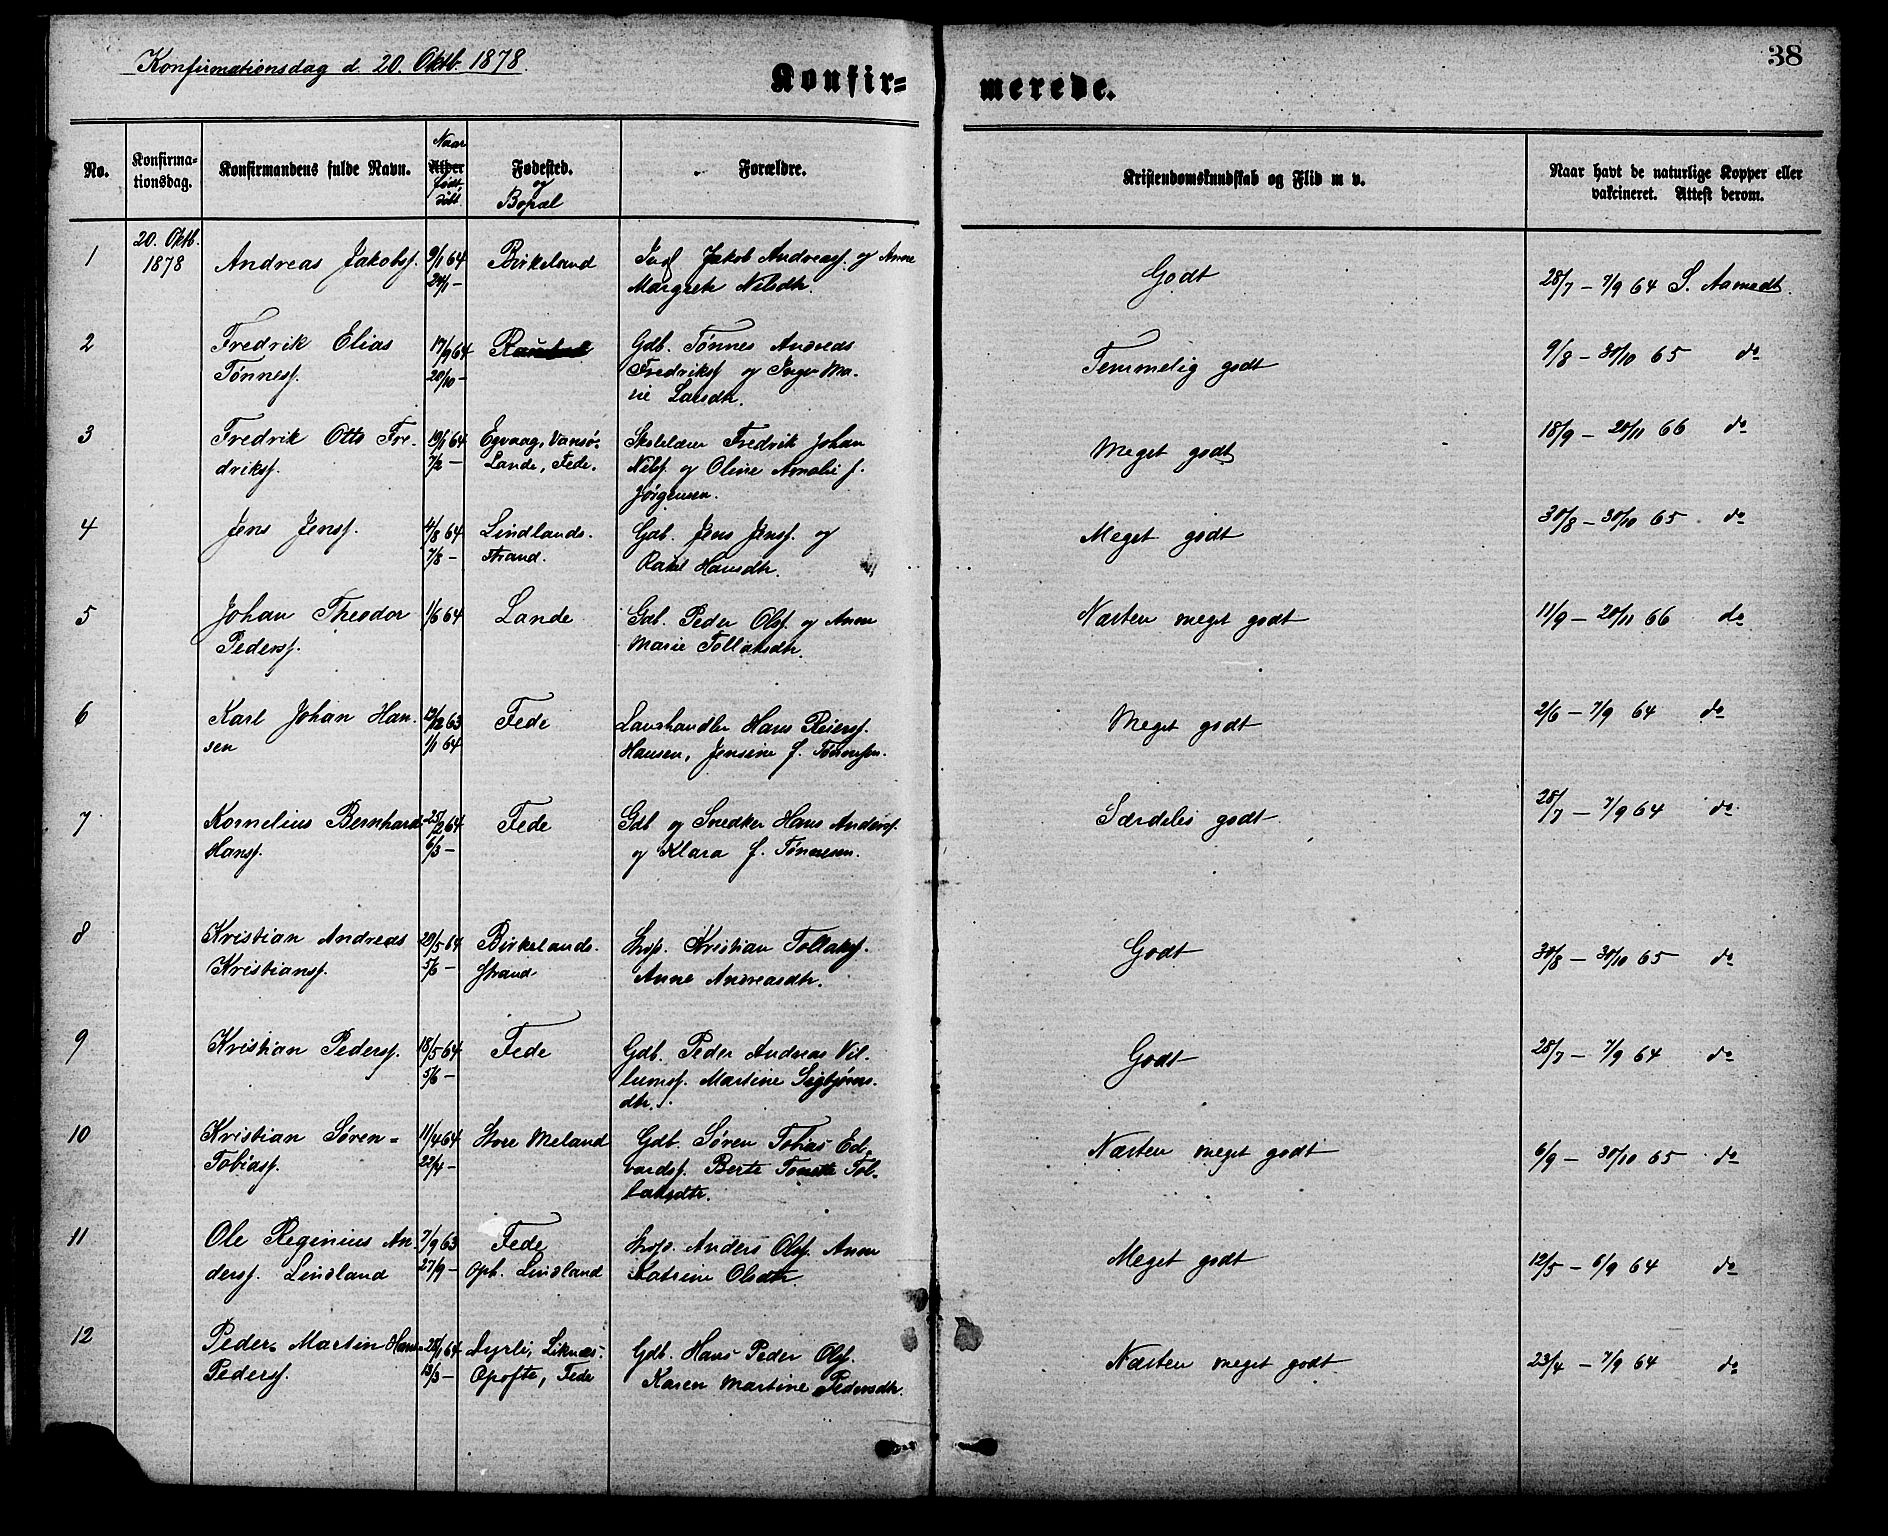 Konfirmationsdag d. 20. Oktb. 1878.
Konfir= merede.
38
No.
Konfirma-
tionsdag.
Konfirmandens fulde Navn.
Naar
Alder
født,
døbt
Fødested.
og
Bopæl
Forældre.
Kristendomskundskab og Flid m v.
Naar havt de naturlige Kopper eller
vakcineret. Attest derom.
1
20. Oktb.
1878
Andreas Jakobsf.
9/1 64
24/1 —
Birkeland
Jakob Andreasf. og Anne
Margrete Nilsdtr.
Godt
28/7 — 7/9 64 S. Aamodt.
2
Fredrik Elias
Tønnesf.
17/9 64
20/10 —
Gdb. Tønnes Andreas
Fredriksf og Inger Ma-
rie Larsdtr.
Temmelig godt
9/8 — 30/10 65 do
3
Fredrik Otto Fre-
driksf.
19/1 64
7/2 —
Egvaag, Vansø.
Lande, Fede.
Skolelærer Fredrik Johan
Nilsf. og Oline Amalie f.
Jørgensen.
Meget godt
18/9 — 20/11 66 do
4
Jens Jensf.
4/8 64
7/8 —
Lindlands-
strand.
Gdb. Jens Jensf. og
Rakel Hansdtr.
Meget godt
30/8 — 30/10 65 do
5
Johan Theodor
Pedersf.
1/6 64
Lande
Gdb. Peder Olsf. og Anne
Marie Tollaksdtr.
Næsten meget godt
11/9 — 20/11 66 do
6
Karl Johan Han-
sen
12/12 63
1/1 64
Fede
Landhandler Hans Reiersf.
Hansen, Jensine f. Tønnesen.
Meget godt
2/6 — 7/9 64 do
7
Kornelius Bernhard
Hansf.
25/2 64
6/3 —
Fede
Gdb og Snedker Hans Andersf.
og Klara f. Tønnesen.
Særdeles godt
28/7 — 7/9 64 do
8
Kristian Andreas
Kristiansf.
29/5 64
5/6 —
Birkelands-
strand
Kristian Tollaksf.
Anne Andreasdtr.
Godt
30/8 — 30/10 65 do
9
Kristian Pedersf.
18/5 64
5/6 —
Fede
Gdb. Peder Andreas Vil-
lumsf. Martine Sigbjørns-
dtr.
Godt
28/7 — 7/9 64 do
10
Kristian Søren-
Tobiasf.
11/4 64
22/4 —
Store Meland
Gdb. Søren Tobias Ed-
vardsf. Berte Tonette Tol-
laksdtr.
Næsten meget godt
6/9 — 30/10 65 do
11
Ole Reginius An-
dersf. Lindland
7/9 63
27/9 —
Fede
Oph. Lindland
Anders Olsf. Anne
Katrine Olsdtr.
Meget godt
12/5 — 6/9 64 do
12
Peder Martin Hans-
Pedersf.
28/1 64
13/3 —
Liknæs.
Opofte, Fede
Gdb. Hans Peder Olsf.
Karen Martine Pedersdtr.
Næsten meget godt
23/4 — 7/9 64 do